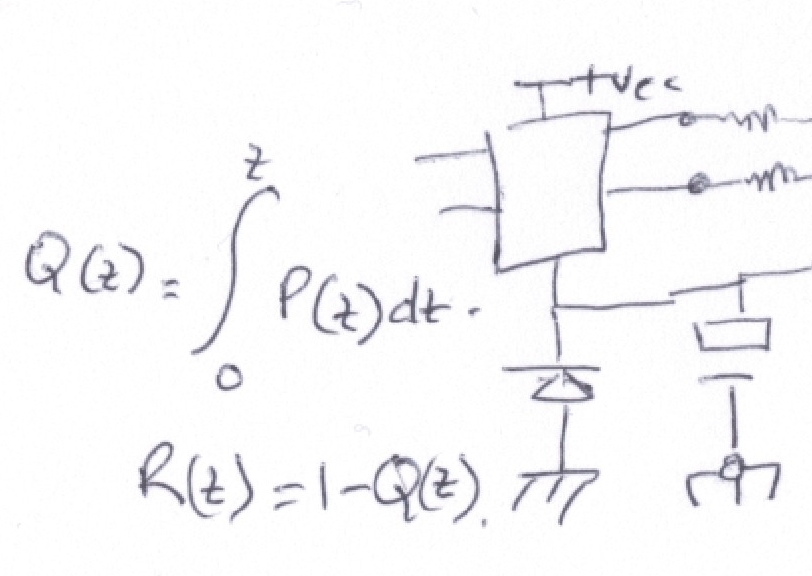 +Vcc
Q(z) = ∫₀ᶻ P(z)dt.
R(z) = 1-Q(z).